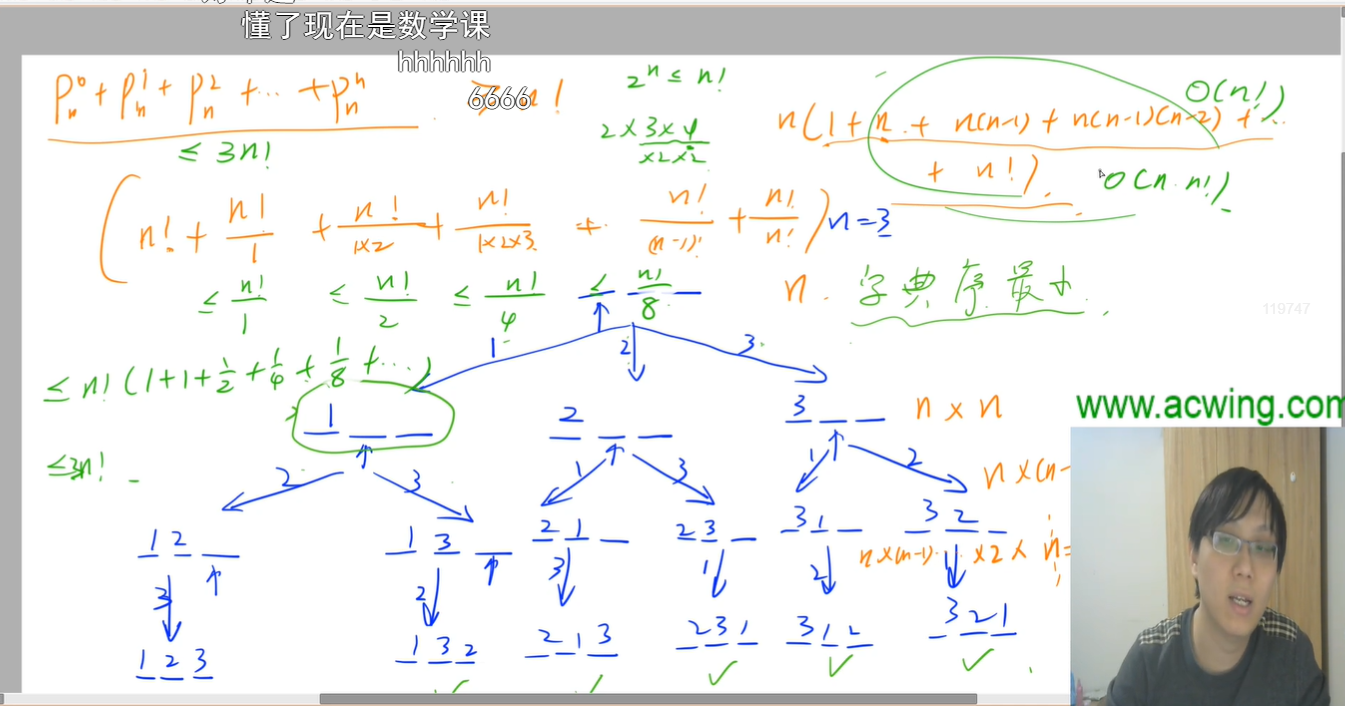 懂了现在是数学课
hhhhhh
6666
Pₙ⁰ + Pₙ¹ + Pₙ² + … + Pₙⁿ
n!
≤ 3n!
2ⁿ ≤ n!
2×3×4
×2×2
n(1 + n + n(n-1) + n(n-1)(n-2) + …
+ n!)
O(n!)
O(n·n!)
(n! + n!/1 + n!/1×2 + n!/1×2×3 + n!/(n-1)! + n!/n!)
n=3
≤ n!/1 ≤ n!/2 ≤ n!/4 ≤ n!/8
n. 字典序最小.
119747
1 2 3
≤ n!(1+1+1/2+1/4+1/8+…)
≤3n!
www.acwing.com
1 _ _
2 _ _
3 _ _
n × n
2 3 1 3 1 2
n×(n-
1 2 _
1 3 _
2 1 _
2 3 _
3 1 _
3 2 _
n×(n-1)
×2×
n=
3 2 3 1 2 1
1 2 3
1 3 2
2 1 3
2 3 1
3 1 2
3 2 1